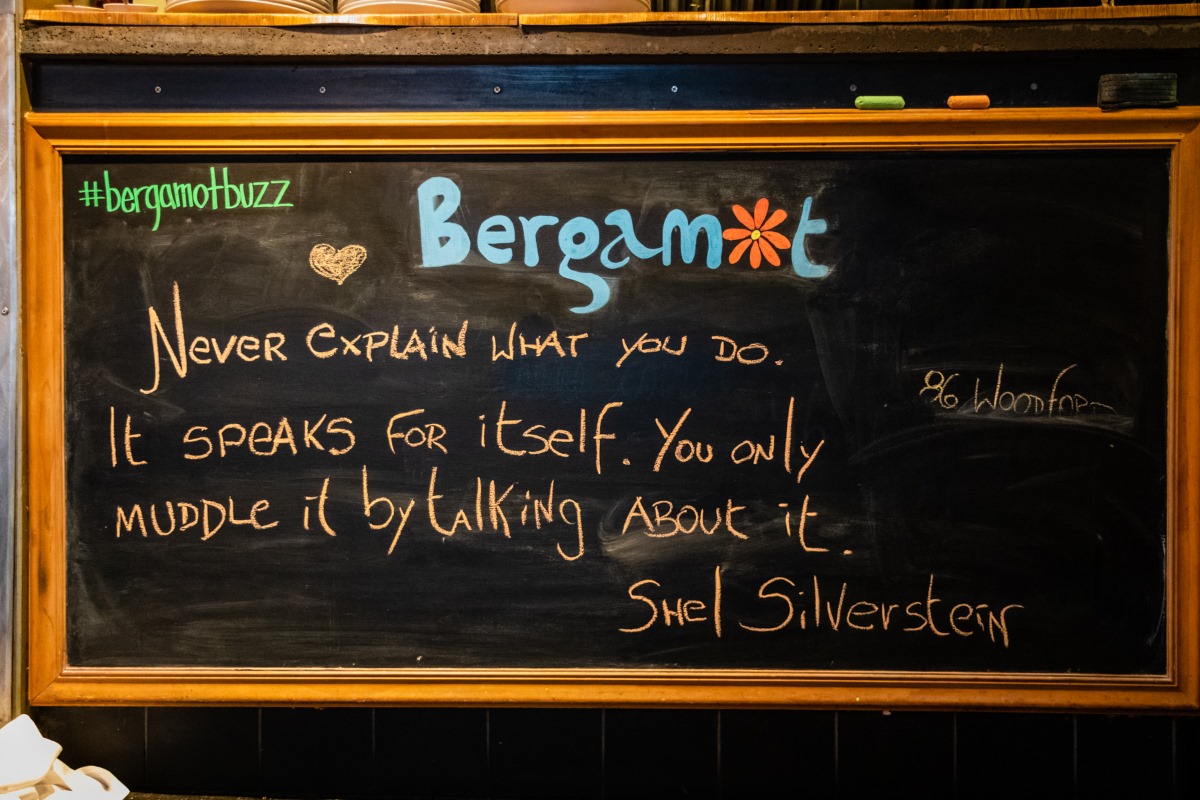 #bergamotbuzz
Bergamot
Never explain what you do.
It speaks for itself. You only
muddle it by talking about it.
Shel Silverstein
86